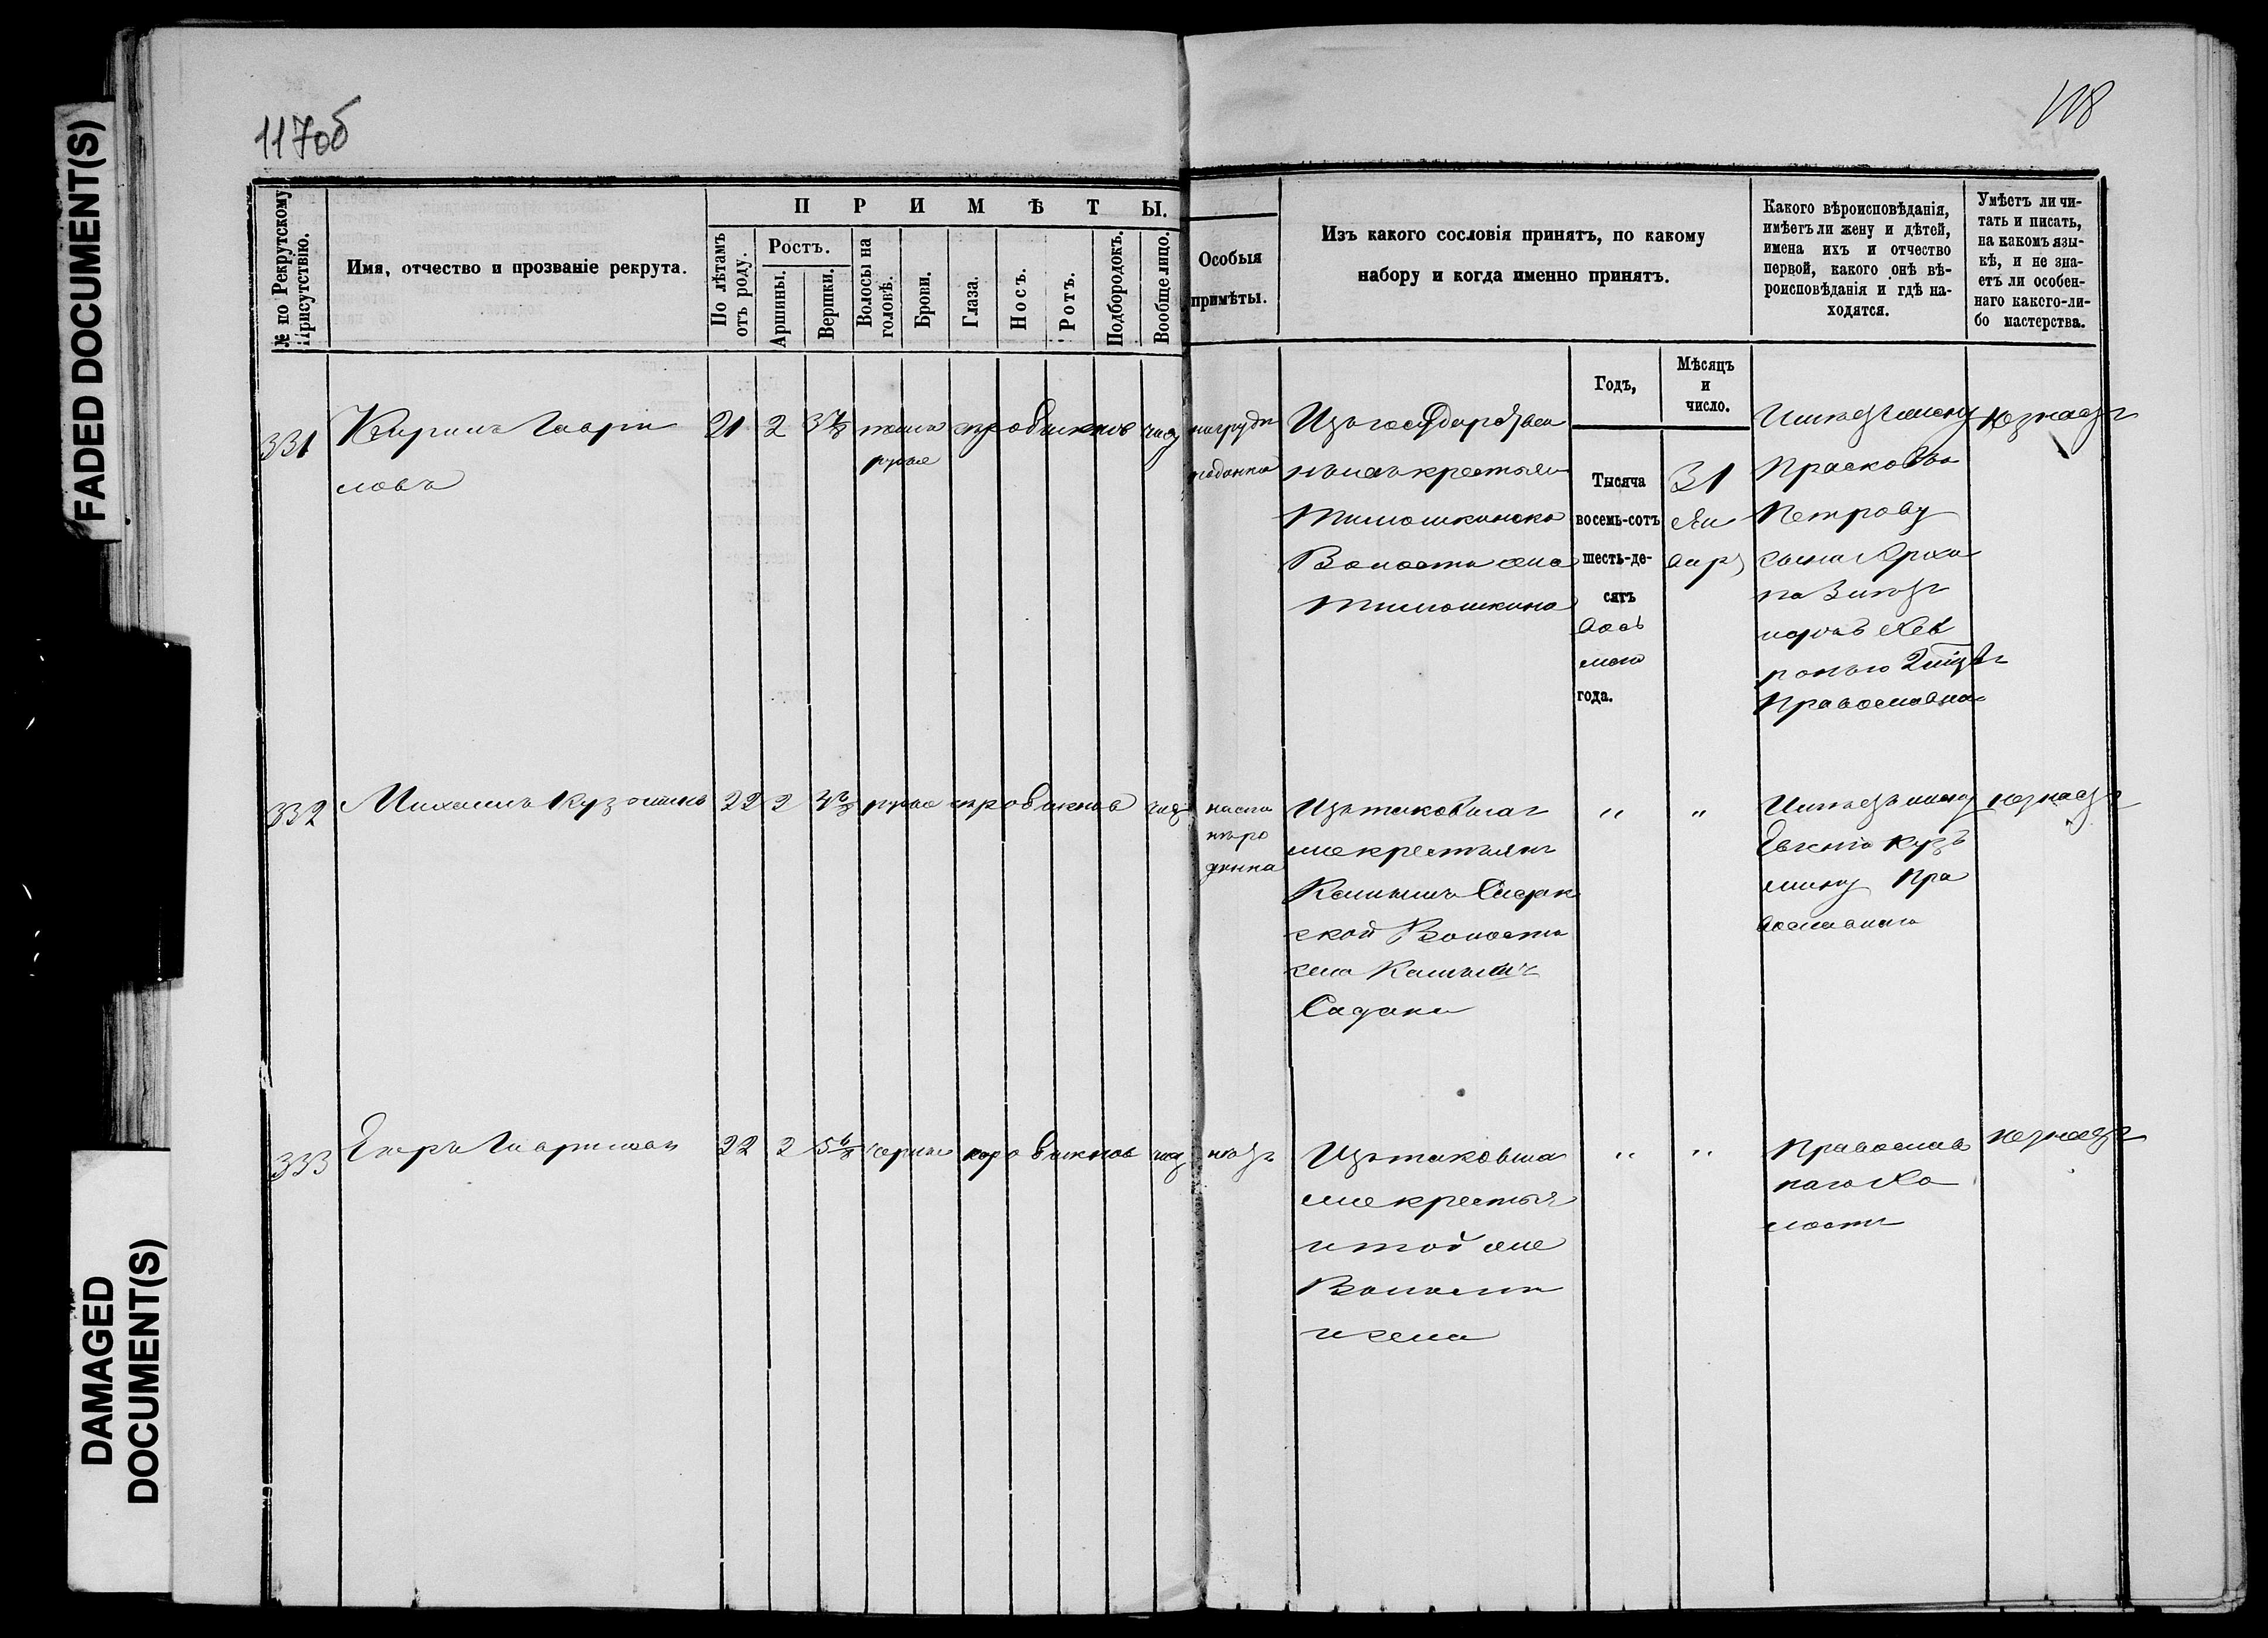 FADED DOCUMENT(S)
DAMAGED
DOCUMENT(S)
117об
118
№ по Рекрутскому
Присутствію.
Имя, отчество и прозваніе рекрута.
ПРИМѢТЫ.
По лѣтамъ
отъ роду.
Ростъ.
Аршины.
Вершки.
Волосы на
головѣ.
Брови.
Глаза.
Носъ.
Ротъ.
Подбородокъ.
Вообще лицо.
Особыя
примѣты.
Изъ какого сословія принятъ, по какому
набору и когда именно принятъ.
Какого вѣроисповѣданія,
имѣетъ ли жену и дѣтей,
имена ихъ и отчество
первой, какого онѣ вѣ-
роисповѣданія и гдѣ на-
ходятся.
Умѣетъ ли чи-
тать и писать,
на какомъ язы-
кѣ, и не зна-
етъ ли особен-
наго какого-ли-
бо мастерства.
Годъ,
Мѣсяцъ
и
число.
331
Кирилъ Гаври
ловъ
21
2
темно
русые
на груди
Изъ государствен
ныхъ крестьян
Тимошкинско
Волости села
Тимошкина
Тысяча
восемь-сотъ
шесть-де-
сятъ
вось
маго
года.
31
Ян
варя
Имѣетъ жену
Прасковью
Петрову
сына Архи
па
Православна
незнаетъ
332
Михаилъ Кузминъ
22
2
русые
на спи
нѣ ро
динка
Изъ таковыхъ
же крестьянъ
ской Волости
села
Садаки
"
"
Имѣетъ жену
Евгенію Кузь
мину Пра
вославнаго
незнаетъ
333
Егоръ Гавриловъ
22
2
черные
нѣтъ
Изъ таковыхъ
же крестья
и той же
Волости
и села
"
"
Православ
наго Хо
лостъ
незнаетъ